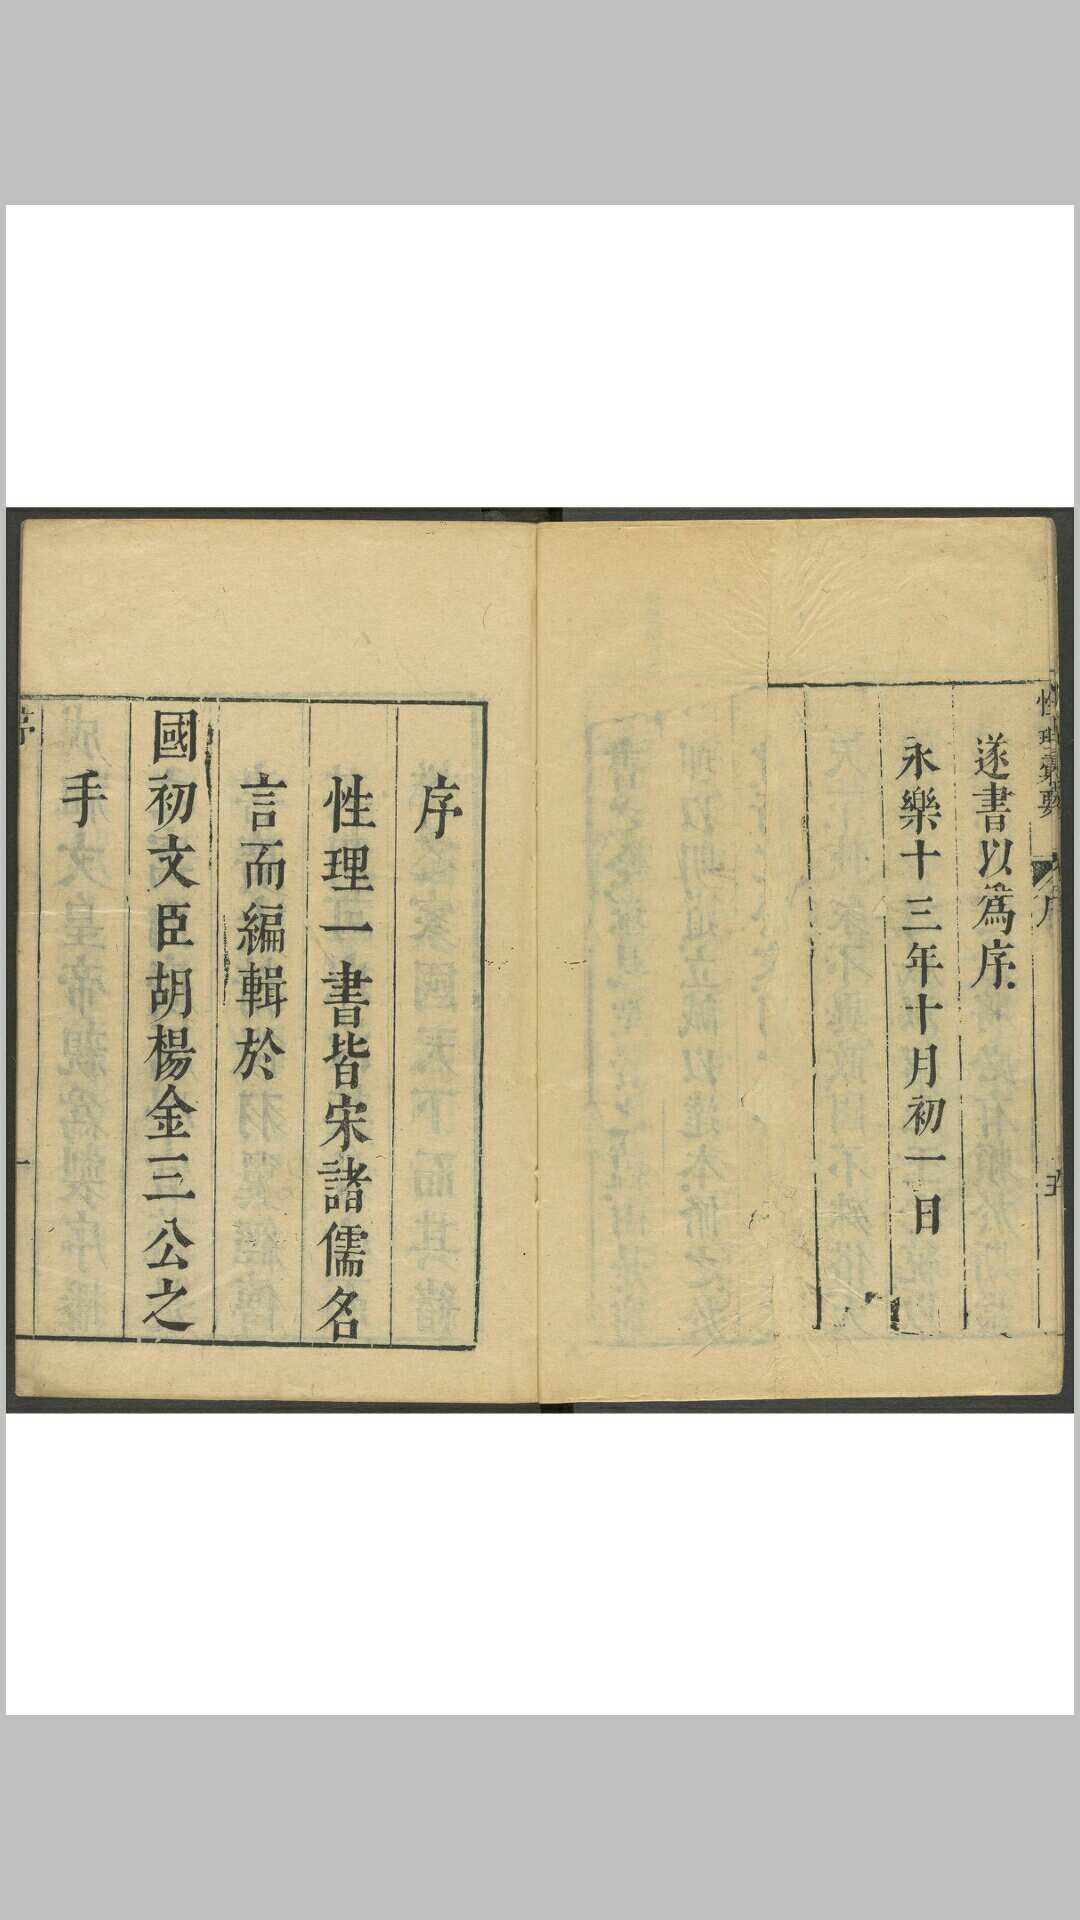 性理彙要
序
五
遂書以為序
永樂十三年十月初一日
序
性理一書皆宋諸儒名
言而編輯於
國初文臣胡楊金三公之
手
序
一